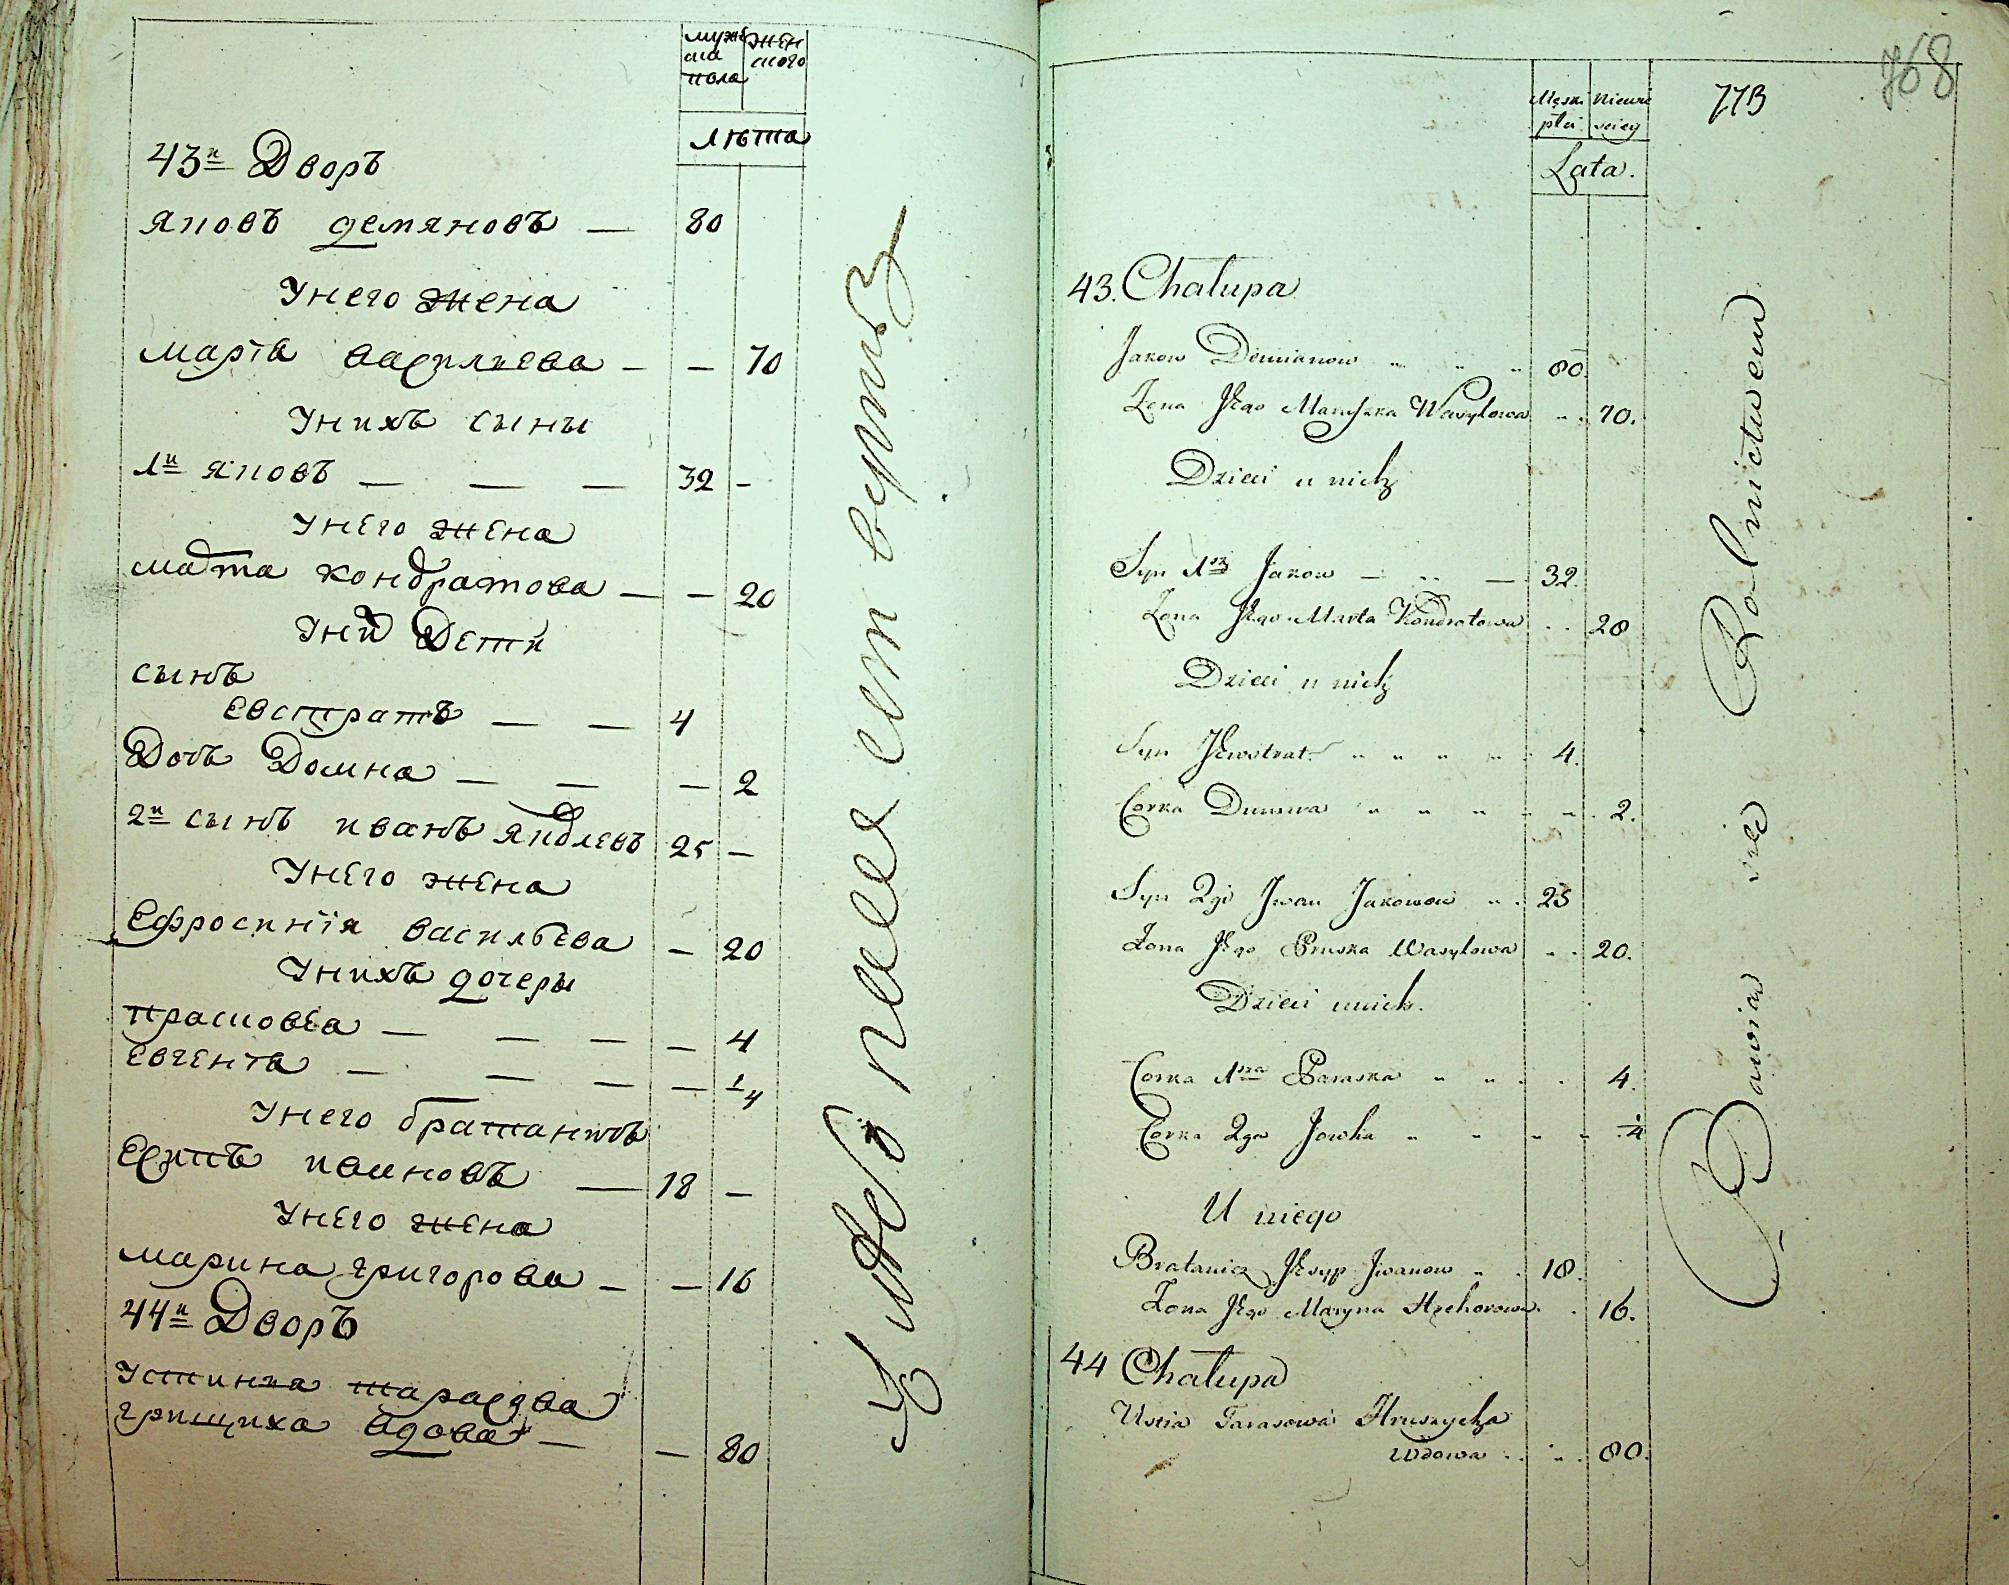 мужеска пола
женскаго
лѣта
43й Дворъ
яковъ демяновъ — 80
Унего жена
марія василиева — — 70
Унихъ сыны
1й яковъ — — — 32 —
Унего жена
марта кондратова — — 20
Уних Дети
сынъ
евстратъ — — 4
Дочь Домна — — — 2
2й сынъ иванъ яковлевъ 25 —
Унего жена
Ефросинія василъева — 20
Унихъ дочеры
прасковѣа — — — — 4
евгенія — — — — 1/4
Унего братаничъ
Есипъ ивановъ — 18 —
Унего жена
марина григорова — — 16
44й Дворъ
Устиния тарасова
грищиха вдова — — 80
768
773
Męski płci
Niewieściey
Lata.
43. Chałupa
Jakow Demianow 80.
Żona Jego Maryszka Wasylowa 70.
Dzieci u nich
Syn 1szy Jakow 32.
Żona Jego Marta Kondratowa 20
Dzieci u nich
Syn Jewstrat 4.
Corka Dumna 2.
Syn 2gi Jwan Jakowow 25
Żona Jego Pruska Wasylowa 20.
Dzieci unich.
Corka 1sza Paraska 4.
Corka 2ga Jewha 1/4
U niego
Bratanicz Jesyp Jwanow 18.
Żona Jego Maryna Hrehorowa 16.
44 Chałupa
Ustia Tarasowa Hruszycha
Wdowa 80.
Bawia sie Rolnictwem